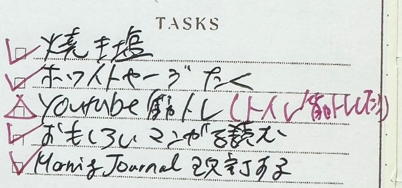 TASKS
焼き塩
ホワイトセージたく
Youtube 筋トレ(トイレ筋トレした)
おもしろいマンガを読む
Morning Journal 改訂する